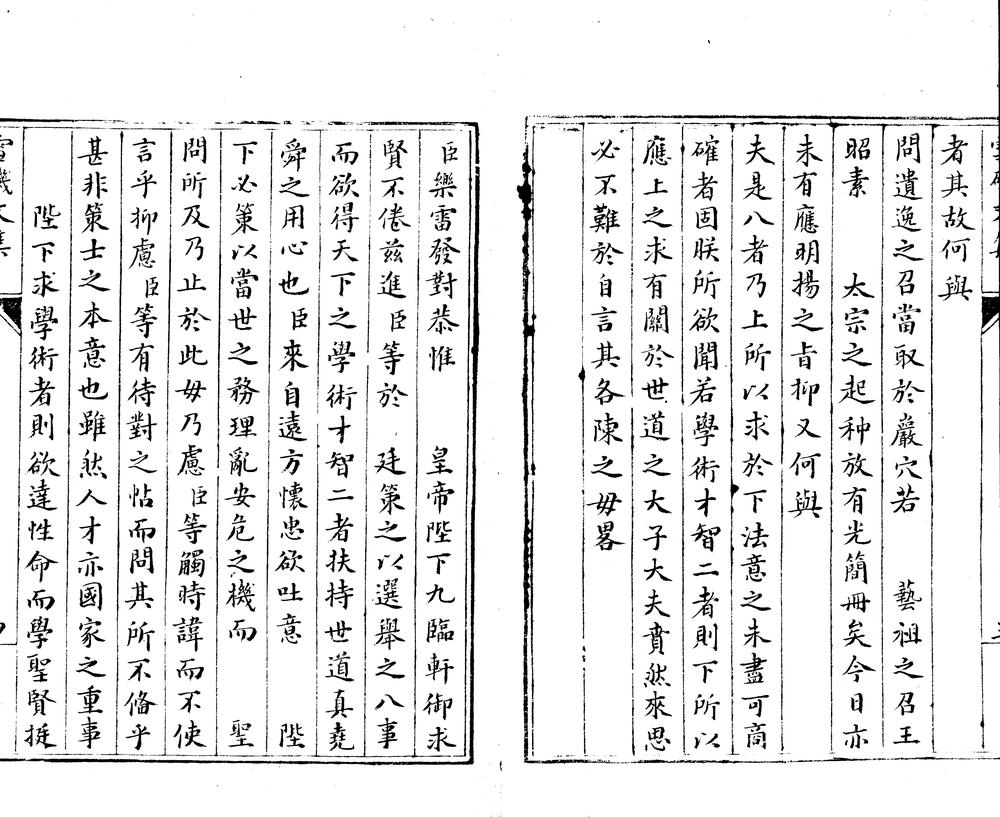 者其故何與
問遺逸之召當取於巖穴若　藝祖之召王
昭素　太宗之起种放有光簡冊矣今日亦
未有應明揚之旨抑又何與
夫是八者乃上所以求於下法意之未盡可商
確者固朕所欲聞若學術才智二者則下所以
應上之求有關於世道之大子大夫賁然來思
必不難於自言其各陳之毋畧
臣樂雷發對恭惟　皇帝陛下九臨軒御求
賢不倦兹進臣等於　廷策之以選舉之八事
而欲得天下之學術才智二者扶持世道真堯
舜之用心也臣來自遠方懷忠欲吐意　陛
下必策以當世之務理亂安危之機而　聖
問所及乃止於此毋乃慮臣等觸時諱而不使
言乎抑慮臣等有待對之帖而問其所不偹乎
甚非策士之本意也雖然人才亦國家之重事
陛下求學術者則欲達性命而學聖賢挺